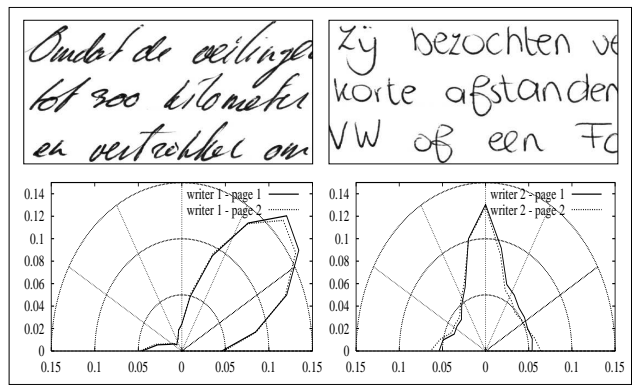 Omdat de veilingen
tot 300 kilometer
en vertrokken om
Zij bezochten ve
korte afstanden
VW of een Fo
writer 1 - page 1
writer 1 - page 2
0.14
0.12
0.1
0.08
0.06
0.04
0.02
0
0.15 0.1 0.05 0 0.05 0.1 0.15
writer 2 - page 1
writer 2 - page 2
0.14
0.12
0.1
0.08
0.06
0.04
0.02
0
0.15 0.1 0.05 0 0.05 0.1 0.15